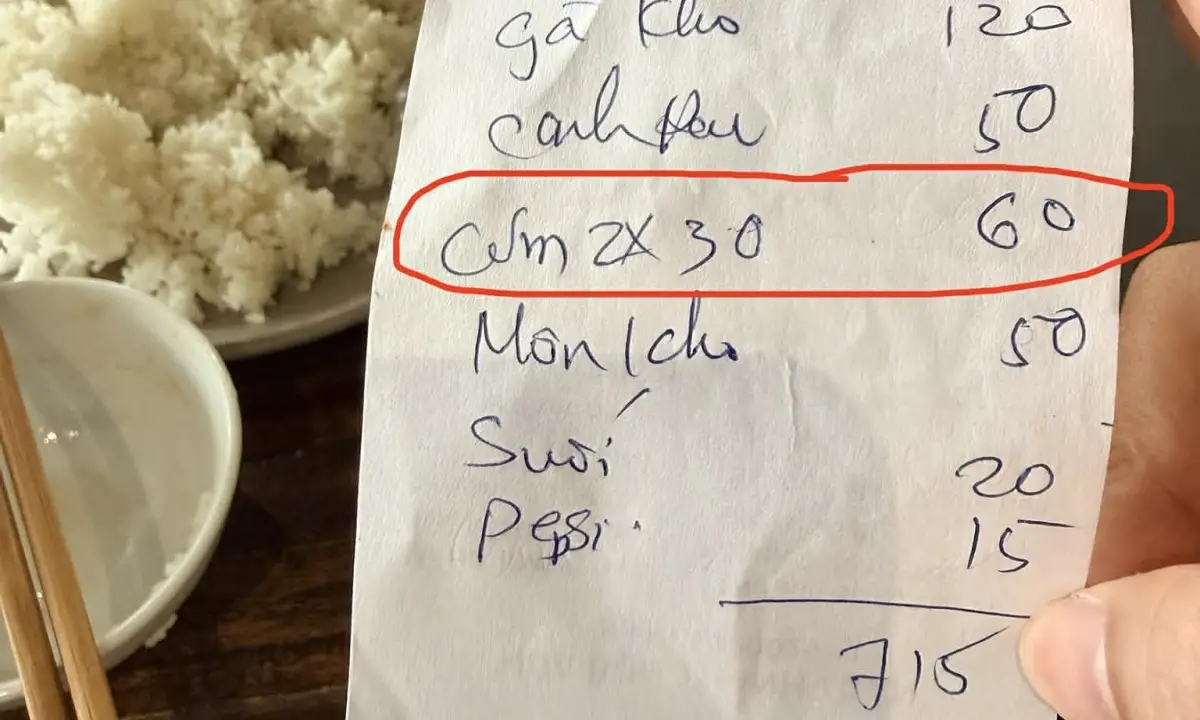 gà kho 120
canh rau 50
Cơm 2X 30 60
Môn 1 50
Suối 20
Pepsi 15
715